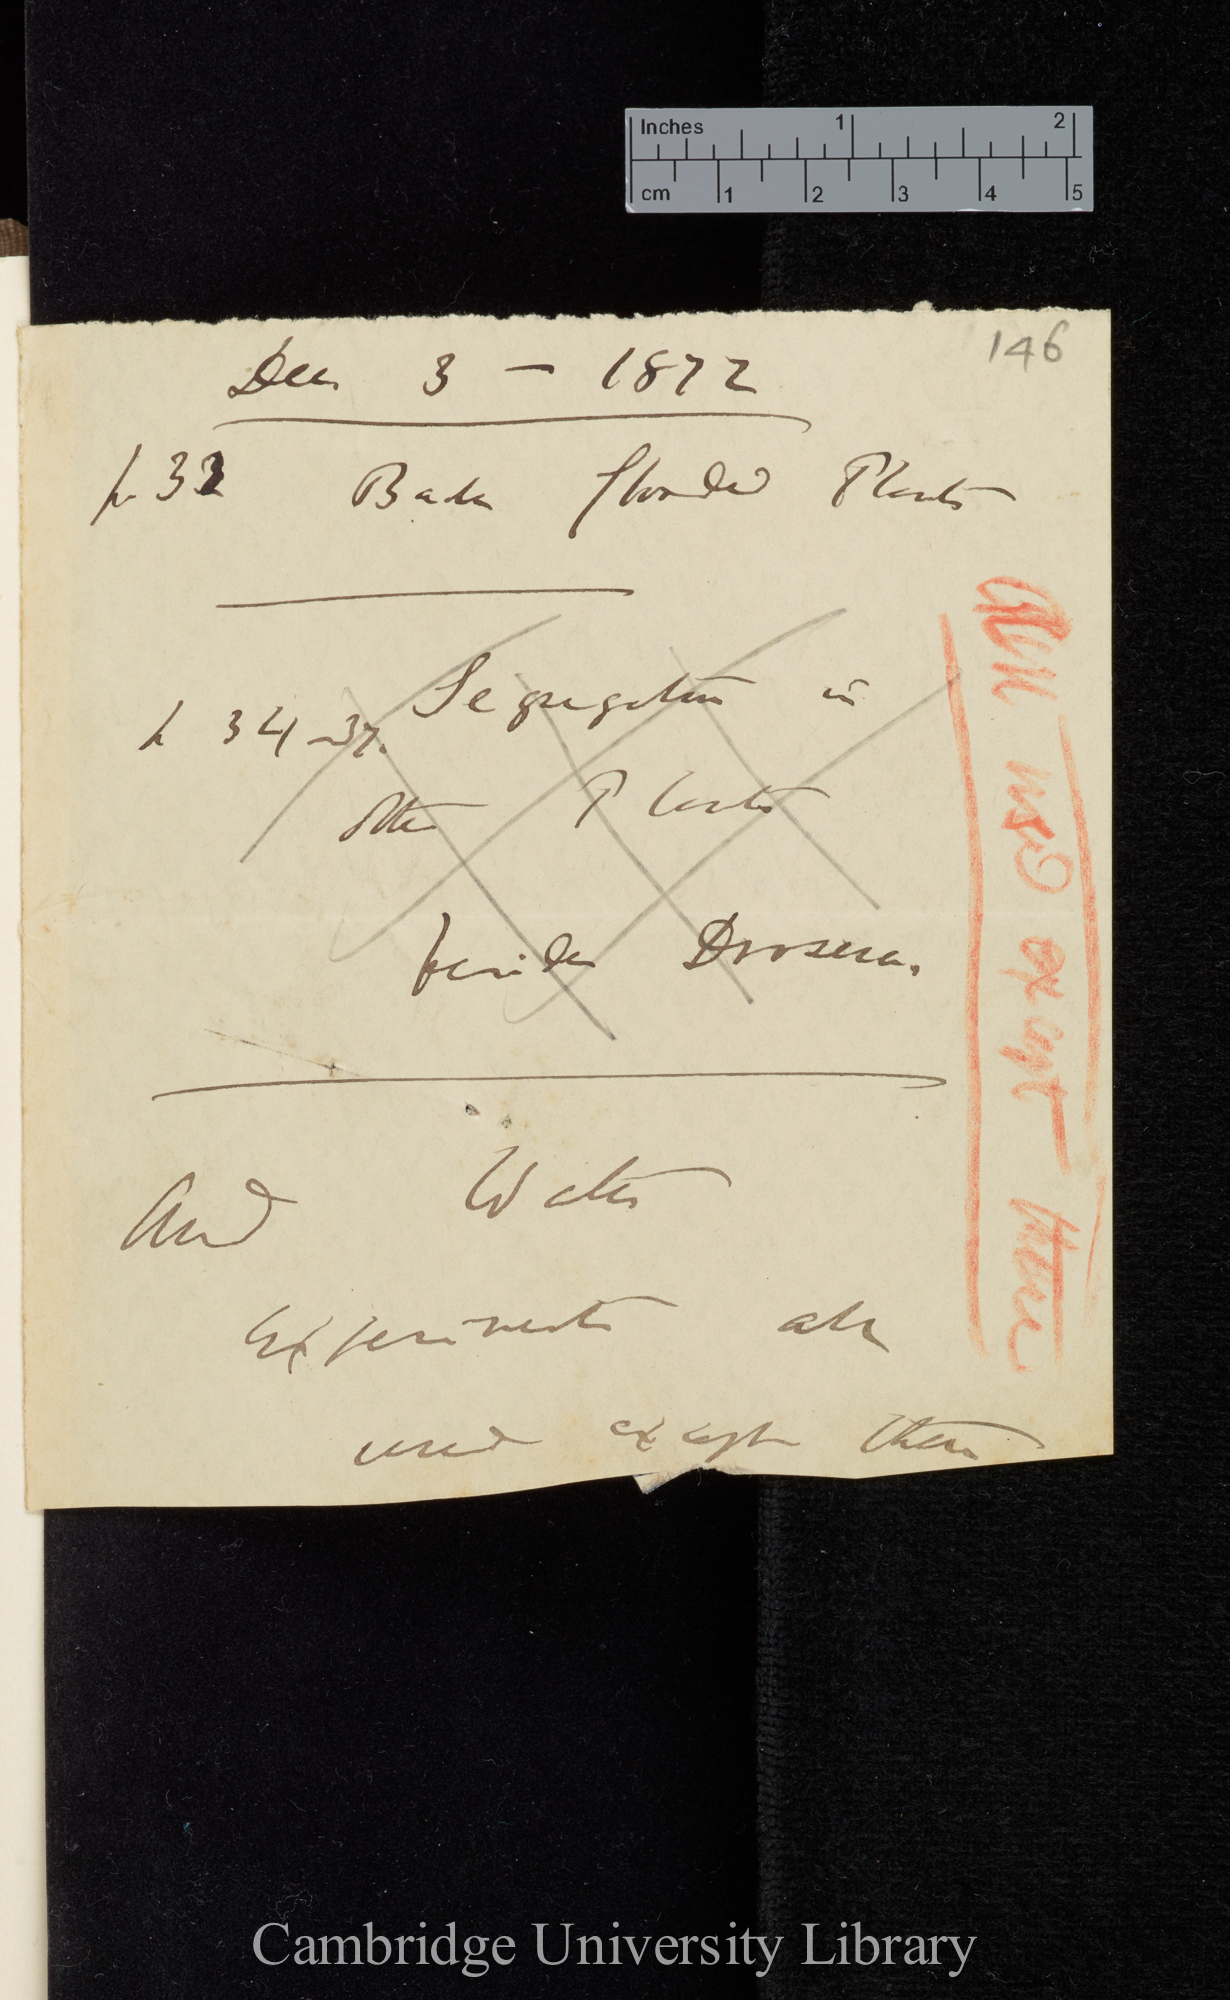 Inches 1 2
cm 1 2 3 4 5
146
Dec 3 – 1872
p. 33 flooded Plants
p 34–37. Segregation in
other Plants
besides Drosera.
And Water
Experiments all
used except these
All used except these
Cambridge University Library